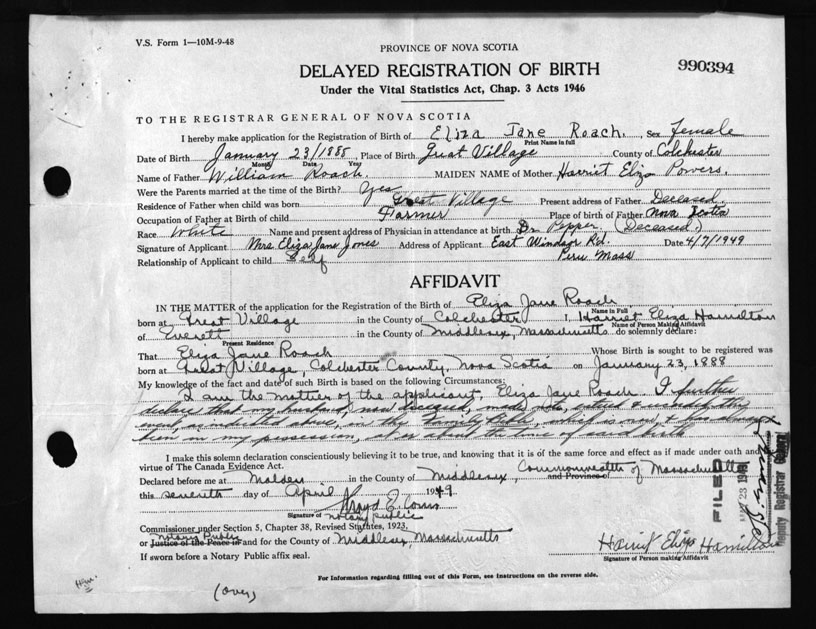 V.S. Form 1—10M-9-48
PROVINCE OF NOVA SCOTIA
990394
DELAYED REGISTRATION OF BIRTH
Under the Vital Statistics Act, Chap. 3 Acts 1946
TO THE REGISTRAR GENERAL OF NOVA SCOTIA
I hereby make application for the Registration of Birth of Eliza Jane Roach. Sex female
Print Name in full
Date of Birth January 23/1888 Place of Birth Great Village County of Colchester
Month Date Year
Name of Father William Roach. MAIDEN NAME of Mother Harriet Eliza Powers.
Were the Parents married at the time of the Birth? Yes
Residence of Father when child was born Great Village Present address of Father Deceased.
Occupation of Father at Birth of child Farmer Place of birth of Father Nova Scotia
Race White Name and present address of Physician in attendance at birth Dr. Pepper. (Deceased.)
Signature of Applicant Mrs. Eliza Jane Jones Address of Applicant East Windsor Rd. Date 4/7/1949
Relationship of Applicant to child Self Peru Mass
AFFIDAVIT
IN THE MATTER of the application for the Registration of the Birth of Eliza Jane Roach
Name in Full
born at Great Village in the County of Colchester I, Harriet Eliza Hamilton
Name of Person Making Affidavit
of Everett in the County of Middlesex, Massachusetts do solemnly declare:
Present Residence
That Eliza Jane Roach Whose Birth is sought to be registered was
born at Great Village, Colchester County, Nova Scotia on January 23, 1888
My knowledge of the fact and date of such Birth is based on the following Circumstances:
I am the mother of the applicant, Eliza Jane Roach. I further
declare that my husband, now deceased, made
event, as indicated above, in the family Bible, which is now, &
been in my possession, at or about the time of said birth
I make this solemn declaration conscientiously believing it to be true, and knowing that it is of the same force and effect as if made under oath and
virtue of The Canada Evidence Act.
Declared before me at Malden in the County of Middlesex, and Province of Commonwealth of Massachusetts
this seventh day of April 1949
Signature of notary public
Commissioner under Section 5, Chapter 38, Revised Statutes, 1923.
or Justice of the Peace in and for the County of Middlesex, Massachusetts
Notary Public
If sworn before a Notary Public affix seal.
Harriet Eliza Hamilton
Signature of Person making Affidavit
FILED
23 194
Deputy Registrar General
For Information regarding filling out of this Form, see instructions on the reverse side.
(over)